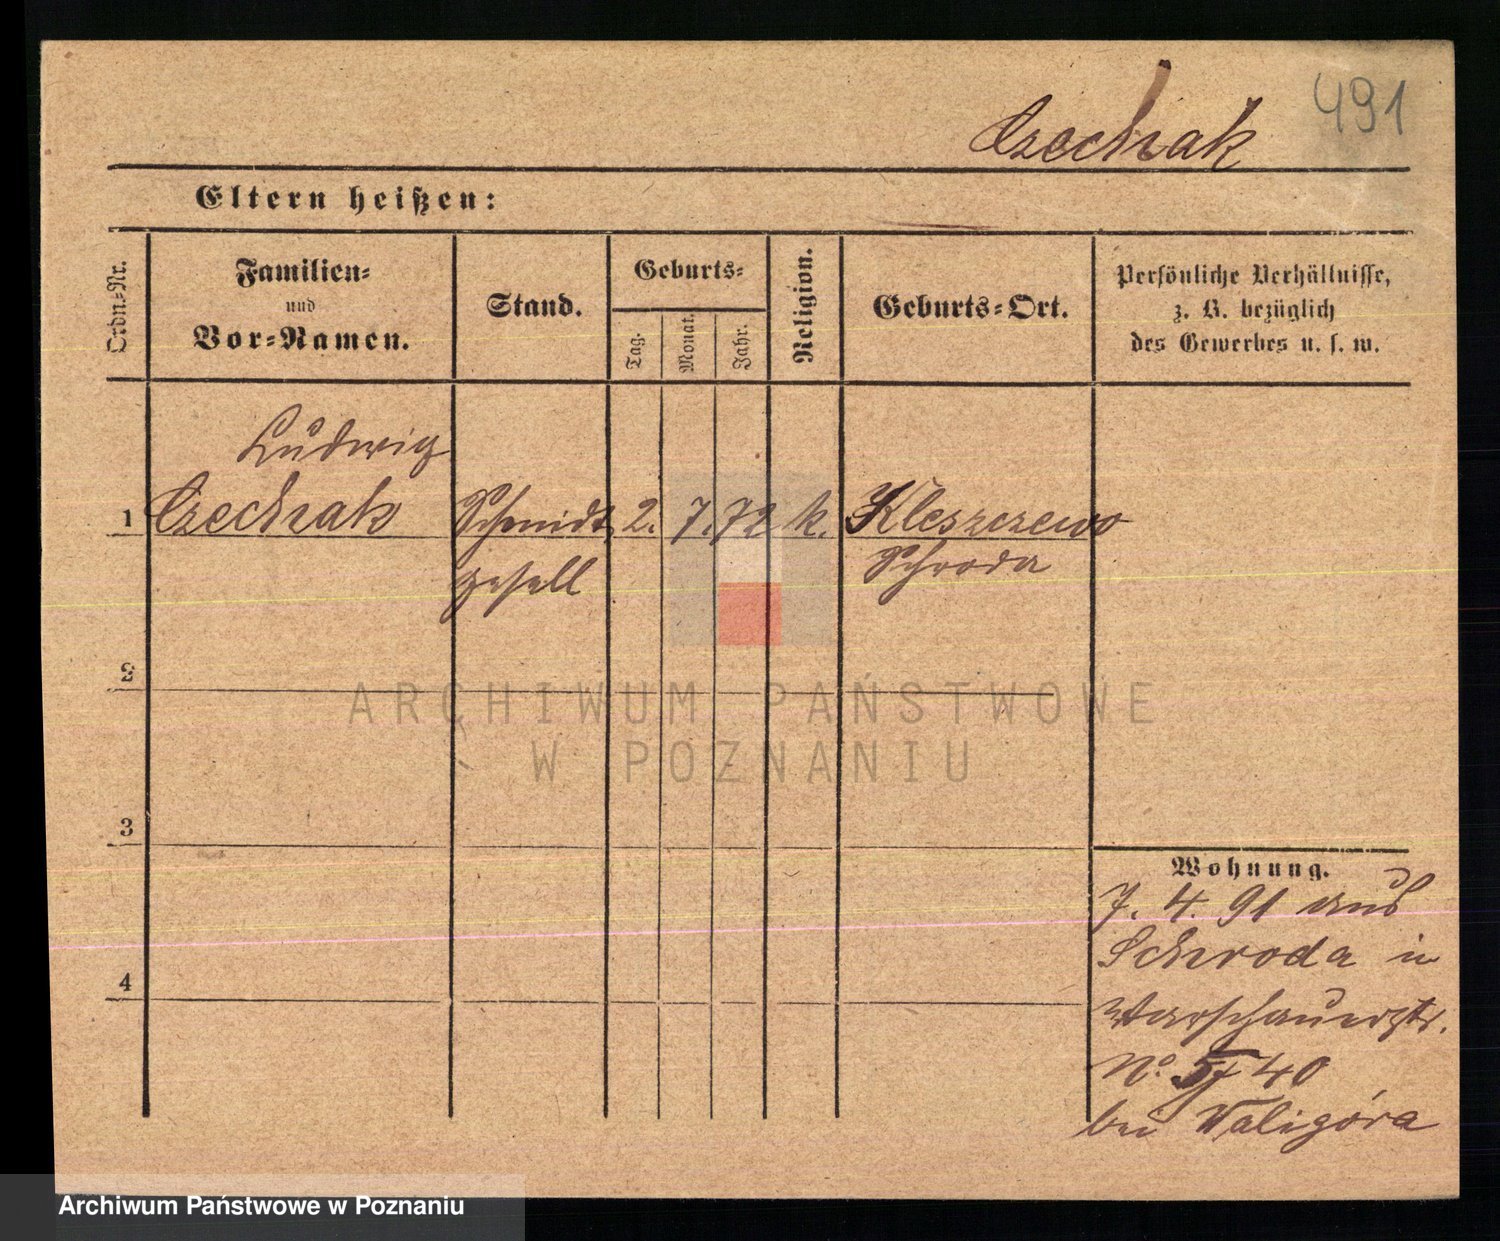 491
Czechrak
Eltern heißen:
Ordn.-Nr.
Familien-
und
Vor-Namen.
Stand.
Geburts-
Tag.
Monat.
Jahr.
Religion.
Geburts-Ort.
Persönliche Verhältnisse,
z. B. bezüglich
des Gewerbes u. s. w.
Ludwig
1 Czechrak Schmidt 2. 7. 72 k. Kleszczewo
gesell Schroda
2
3
4
Wohnung.
7. 4. 91 aus
Schroda in
Warschauerstr.
No. 40
bei Waligóra
ARCHIWUM PAŃSTWOWE
W POZNANIU
Archiwum Państwowe w Poznaniu